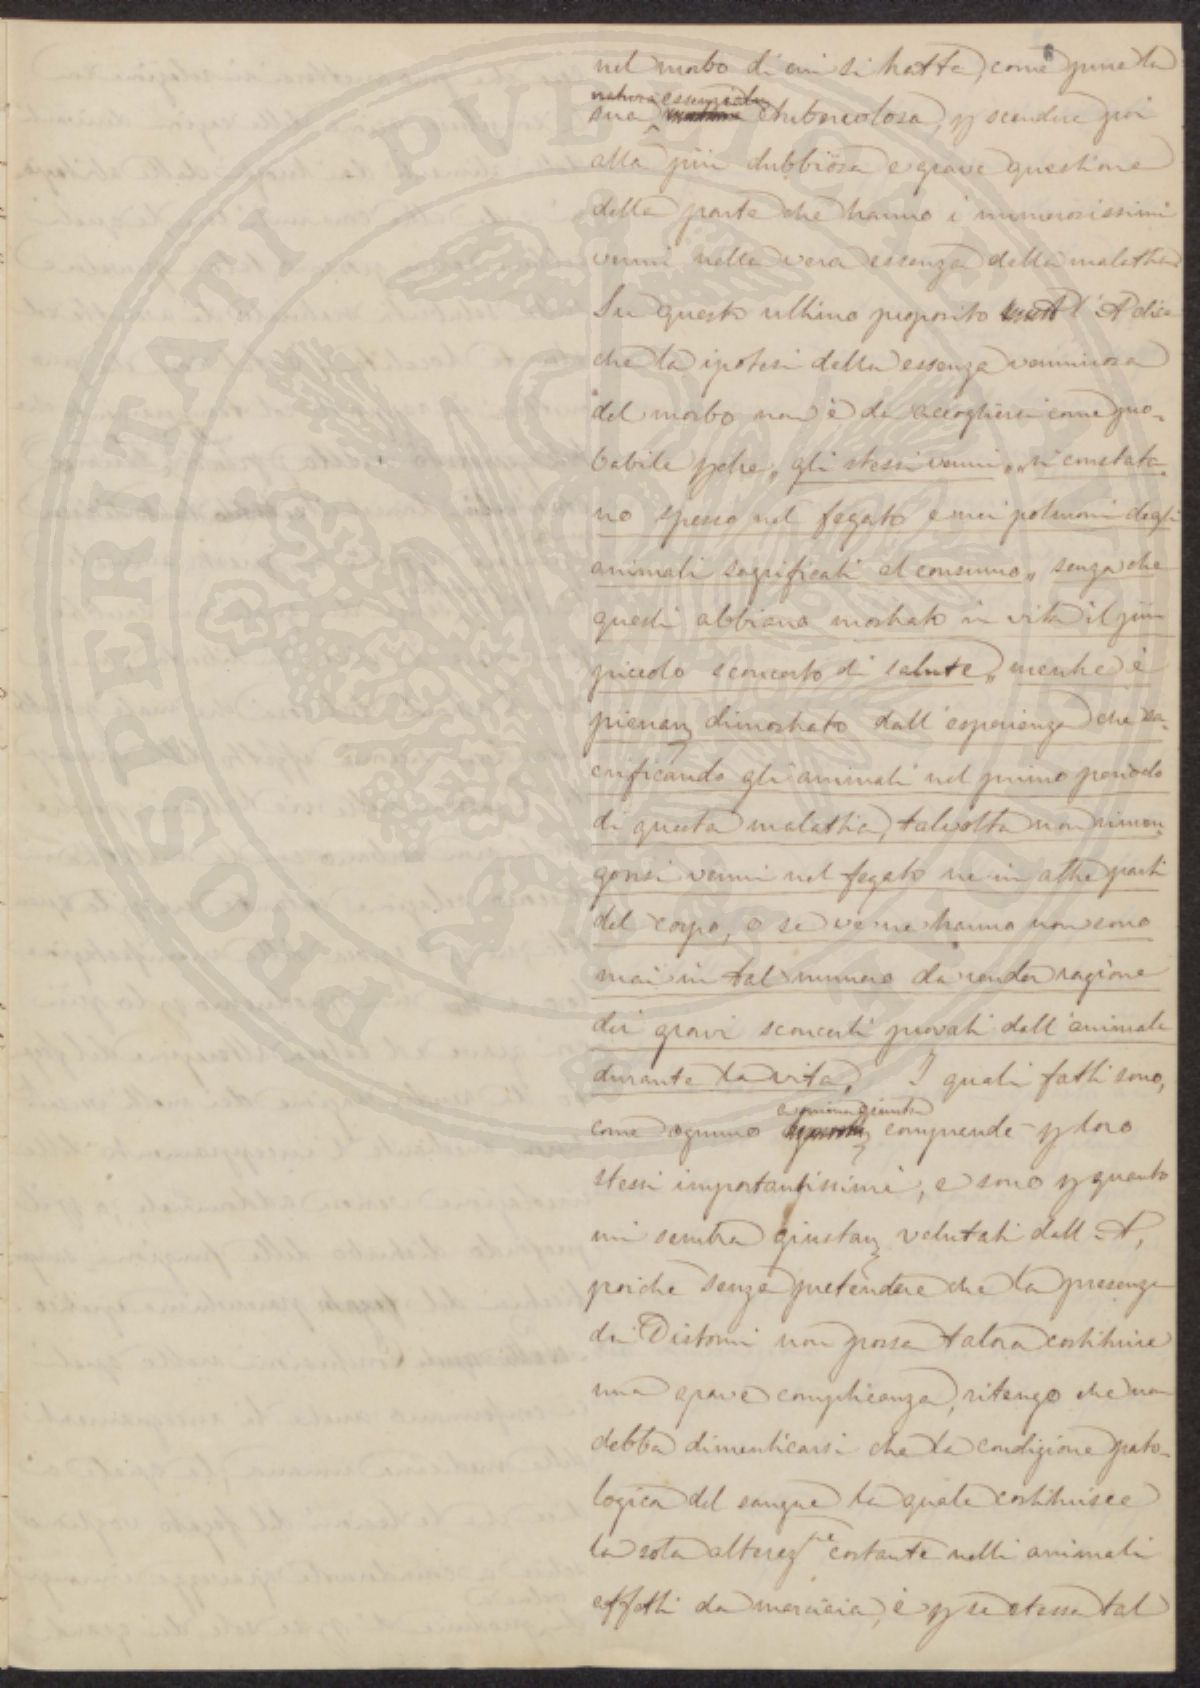 nel morbo di cui si tratta, come pure la
natura essenzialm
sua tubercolosa, p scendere poi
alla più dubbiosa e grave questione
della parte che hanno i numerosissimi
vermi nella vera essenza della malattia.
Su questo ultimo proposito l'A dice
che la ipotesi della essenza verminosa
del morbo non è da accogliersi come pro-
babile pche „ gli stessi vermi „ „ si constata-
no spesso nel fegato e nei polmoni degli
animali sagrificati al consumo „ senza che
questi abbiano mostrato in vita il più
piccolo sconcerto di salute „ mentre è
pienam dimostrato dall'esperienza che sa-
crificando gli animali nel primo periodo
di questa malattia, talvolta non rinven-
gonsi vermi nel fegato ne in altre parti
del corpo, o se ve ne hanno non sono
mai in tal numero da render ragione
dei gravi sconcerti provati dall'animale
durante la vita. I quali fatti sono,
come ognuno comprende p loro
stessi importantissimi, e sono p quanto
mi sembra giustam valutati dall'A,
poiche senza pretendere che la presenza
di Distomi non possa talora costituire
una grave complicanza, ritengo che non
debba dimenticarsi che la condizione pato-
logica del sangue la quale costituisce
la sola alteraz.ne costante nelli animali
affetti da marciaia, è p se stessa tal
PROSPERITATI PVBLICAE